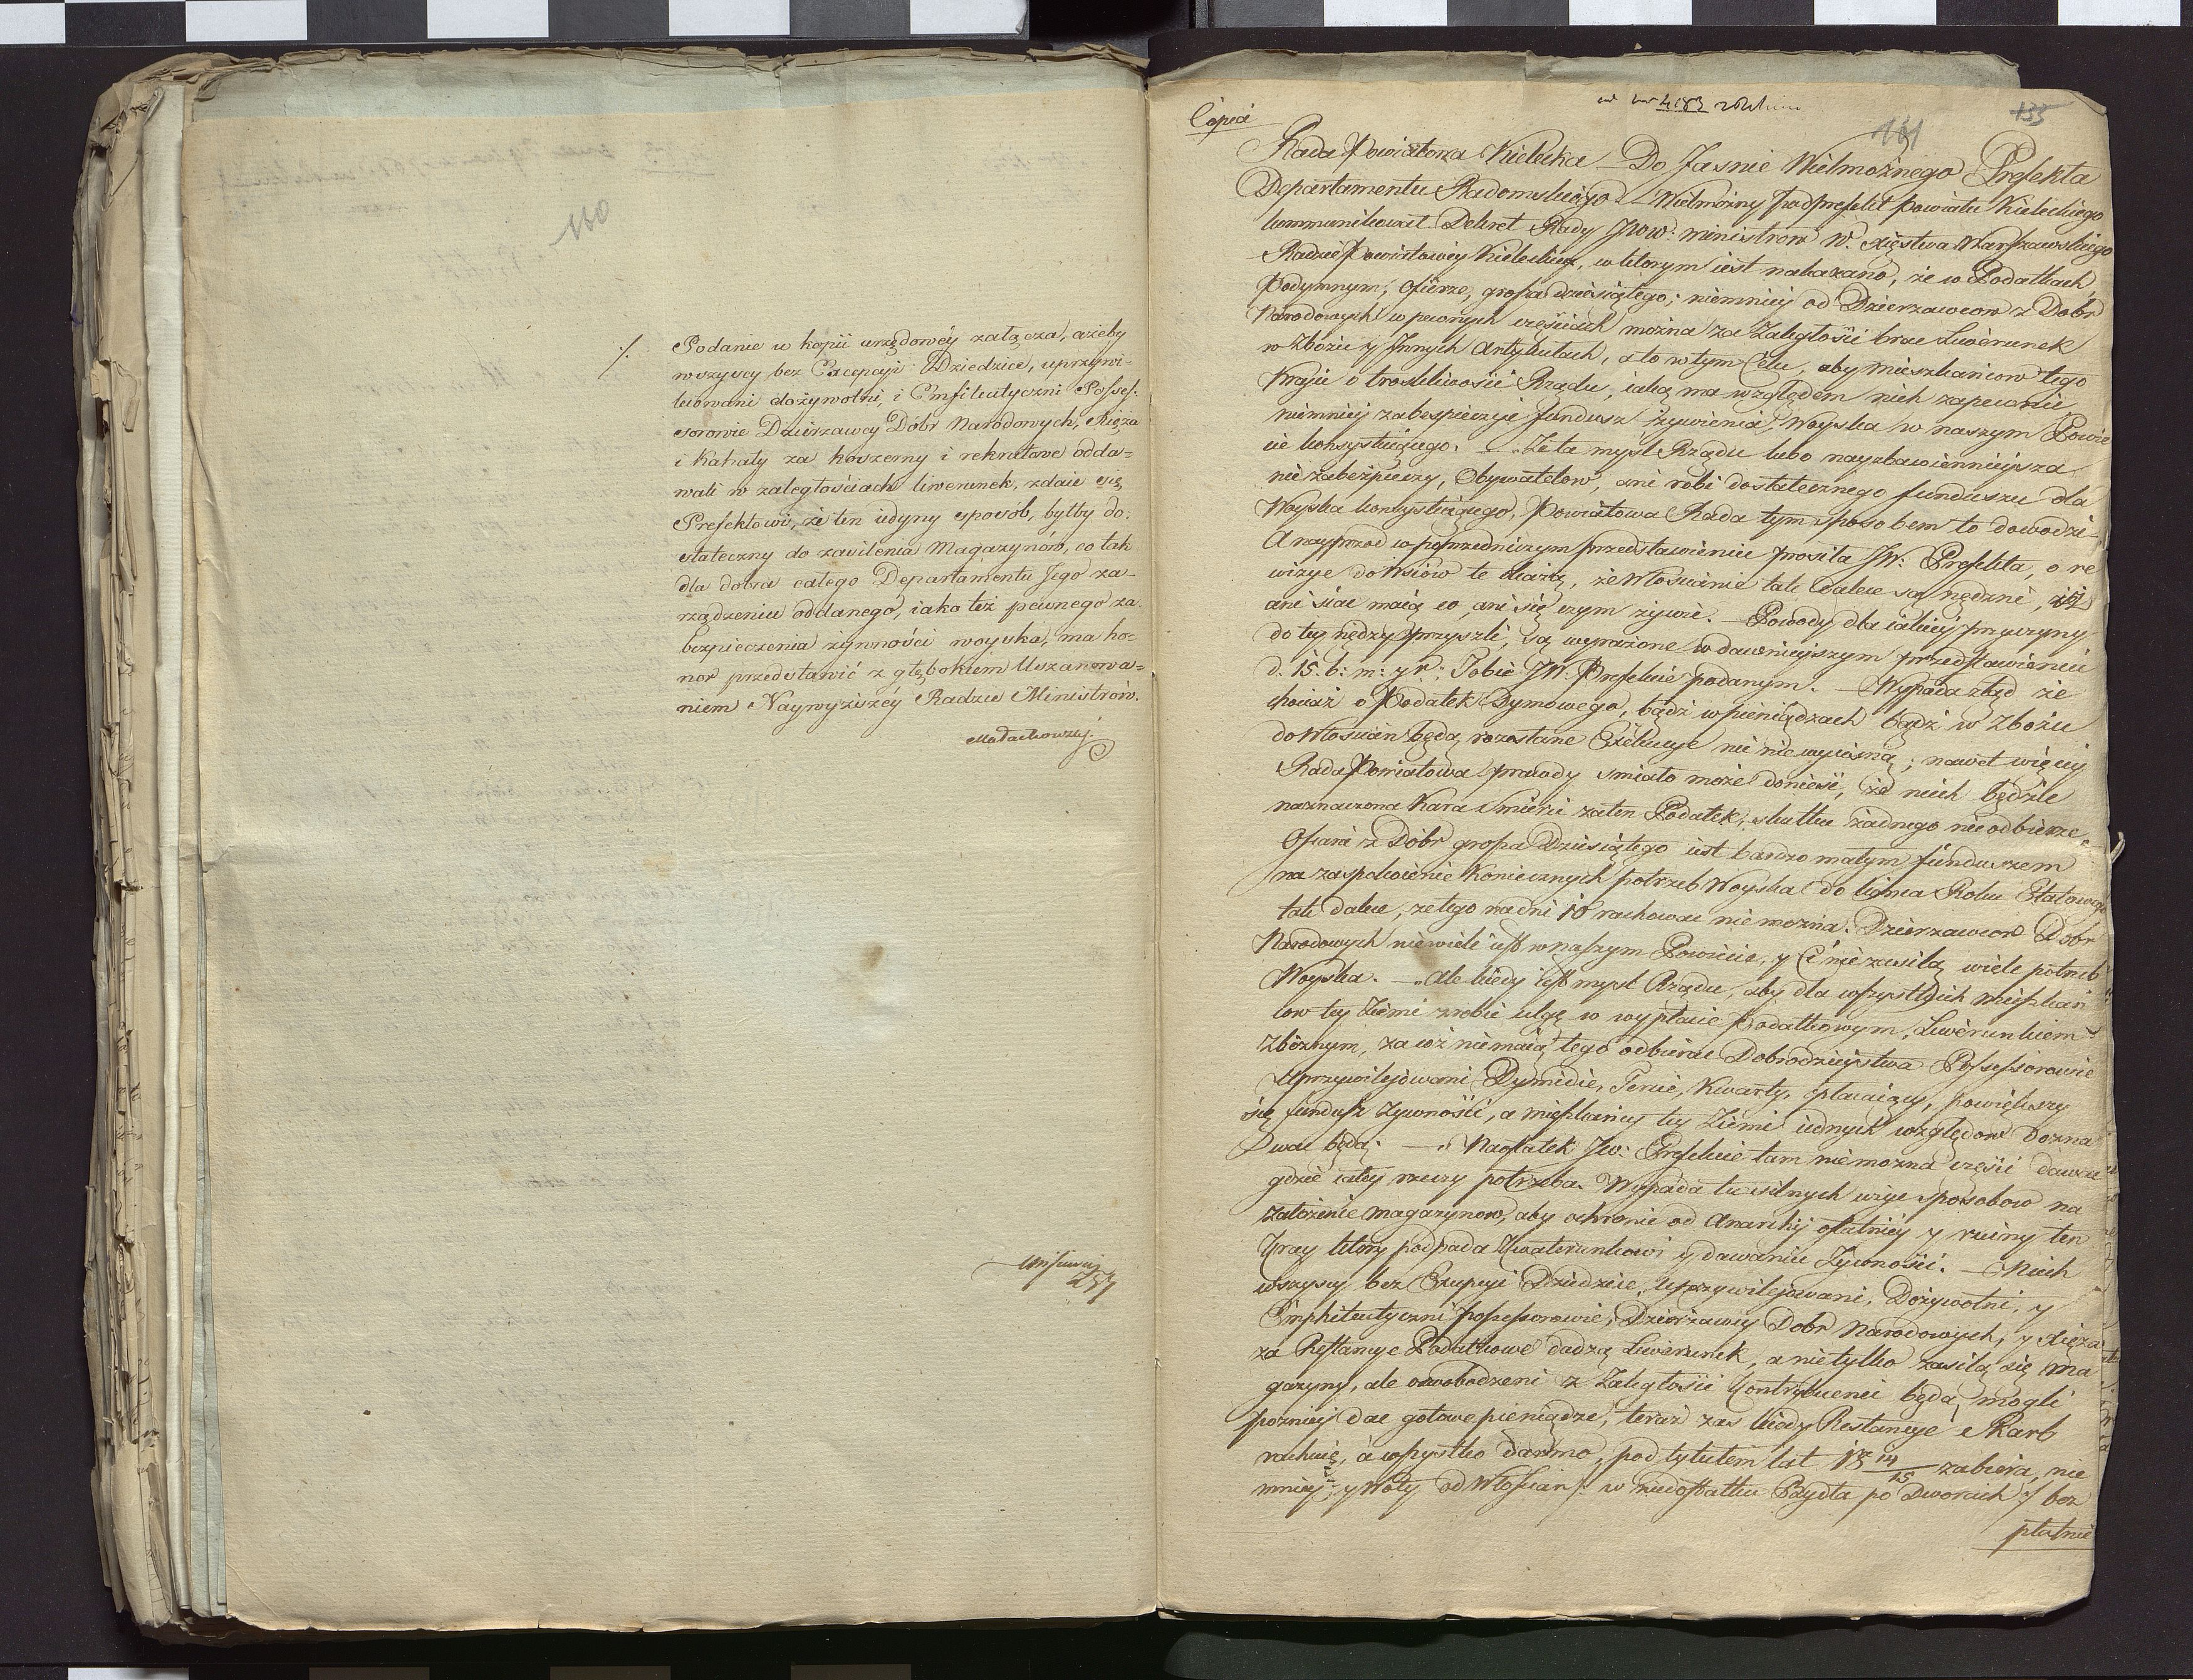 160
./. Podanie w kopii urzędowéy załącza, ażeby
wszyscy bez Excepcji Dziedzice, uprzywi-
leiowani dożywotni, i Emfiteutyczni Posses-
sorowie Dzierżawcy Dóbr Narodowych, Xięża
i Kahały za koszerny i rekrutowe odda=
wali w zaległościach liwerunek, zdaie się
Prefektowi, że ten iedyny sposób, byłby do-
stateczny do zasilenia Magazynów, co tak
dla dobra całego Departamentu Jego za-
rządzeniu oddanego, iako też pewnego za-
bezpieczenia żywności woyska, ma ho-
nor przedstawić z głębokiem Uszanowa=
niem Naywyższéy Radzie Ministrów.
Małachowski.
Copia
135
161
Rada Powiatowa Kielecka Do Jasnie Wielmożnego Prefekta
Departamentu Radomskiego. Wielmożny Podprefekt Powiatu Kieleckiego
kommunikował Dekret Rady Ministrow X. Xięstwa Warszawskiego
Radzie Powiatowey Kieleckiey, w ktorym iest nakazano, że w Podatkach
Podymnym, Ofierze, grosza dziesiątego, niemniey od Dzierzawcow z Dobr
Narodowych w pewnych częściach można za Zaległości brac Liwerunek
w Zbożu y Jnnych Artykułach, a to w tym Celu, aby mieszkańcow tego
Kraju o troskliwości Rządu, iaką ma względem nich zapewnic
niemniey zabespieczyc fundusz żywienia Woyska w naszym Powie
cie konsystuiącego. — Ze ta mysl Rządu lubo nayzbawiennieysza
nie zabezpieczy, Obywatelow, ani robi dostatecznego funduszu dla
Woyska konsystuiącego, Powiatowa Rada tym sposobem to dowodzi
A nayprzod w poprzedniczym przedstawieniu prosiła JW. Prefekta, o re
wizye do Wsiow te okażą, że Włoscianie tak dalece są nędzni, iż
ani siac maią co, ani się czym żywic. — Powody dla iakiey przyczyny
do tey nędzy przyszli, są wyrażone w dawnieyszym przedstawieniu
d. 15. b: m: y r: Tobie JW. Prefekcie podanym. — Wypada ztąd że
chociaż o Podatek Dymowego, bądź w pieniądzach bądź w Zbożu
do Włoscian będą rozesłane Exekucye nic nie wycisną; nawet więcey
Rada Powiatowa prawdy smiało może donieść, że niech będzie
naznaczona Kara smierci za ten Podatek, skutku żadnego nie odbierze
Ofiara z Dobr grosza Dziesiątego iest bardzo małym funduszem
na zaspokoienie Koniecznych potrzeb Woyska do konca Roku Etatowego
tak dalece, że tego na dni 10 rachowac nie można. Dzierzawcow Dobr
Narodowych niewiele iest w naszym Powiecie, y Ci nie zasilą wiele potrzeb
Woyska. — Ale kiedy iest mysl Rządu, aby dla wszystkich mieszkań
cow tey Ziemi zrobic ulgę w wypłacie Podatkowym, Liwerunkiem
Zbożnym, za coż nie maią tego odbierac Dobrodzieystwa Possessorowie
Uprzywilejowani Dymidie, Tercie, Kwarty, płacący, powiększy
się fundusz żywności, a mieszkańcy tey Ziemi iednych względow dozna
wac będą. — Naostatek Jw. Prefekcie tam nie można części dawac
gdzie całey rzeczy potrzeba. Wypada tu silnych użyc sposobow na
założenie magazynow, aby ochronic od Anarchij ostatniey y ruiny ten
Kray ktory podpada Kwaterunkowi y dawaniu Żywności. — Niech
wszyscy bez Excepcyi Dziedzice, Uprzywilejowani, Dożywotni, y
Emphiteutyczni possessorowie, Dzierżawcy Dobr Narodowych, y Xięża
za Restancye Podatkowe dadzą Liwerunek, a nie tylko zasilą się Ma
gazyny, ale oswobodzeni z Zaległości Contrybuenci będą mogli
pozniey dac gotowe pieniądze, teraz zas kiedy Restancye Skarb
rachuie, a wszystko darmo, pod tytułem lat 18 14/15 zabiera, nie
mniey y Woły od Włoscian /: w niedostatku Bydła po Dworach :/ bez
płatnie